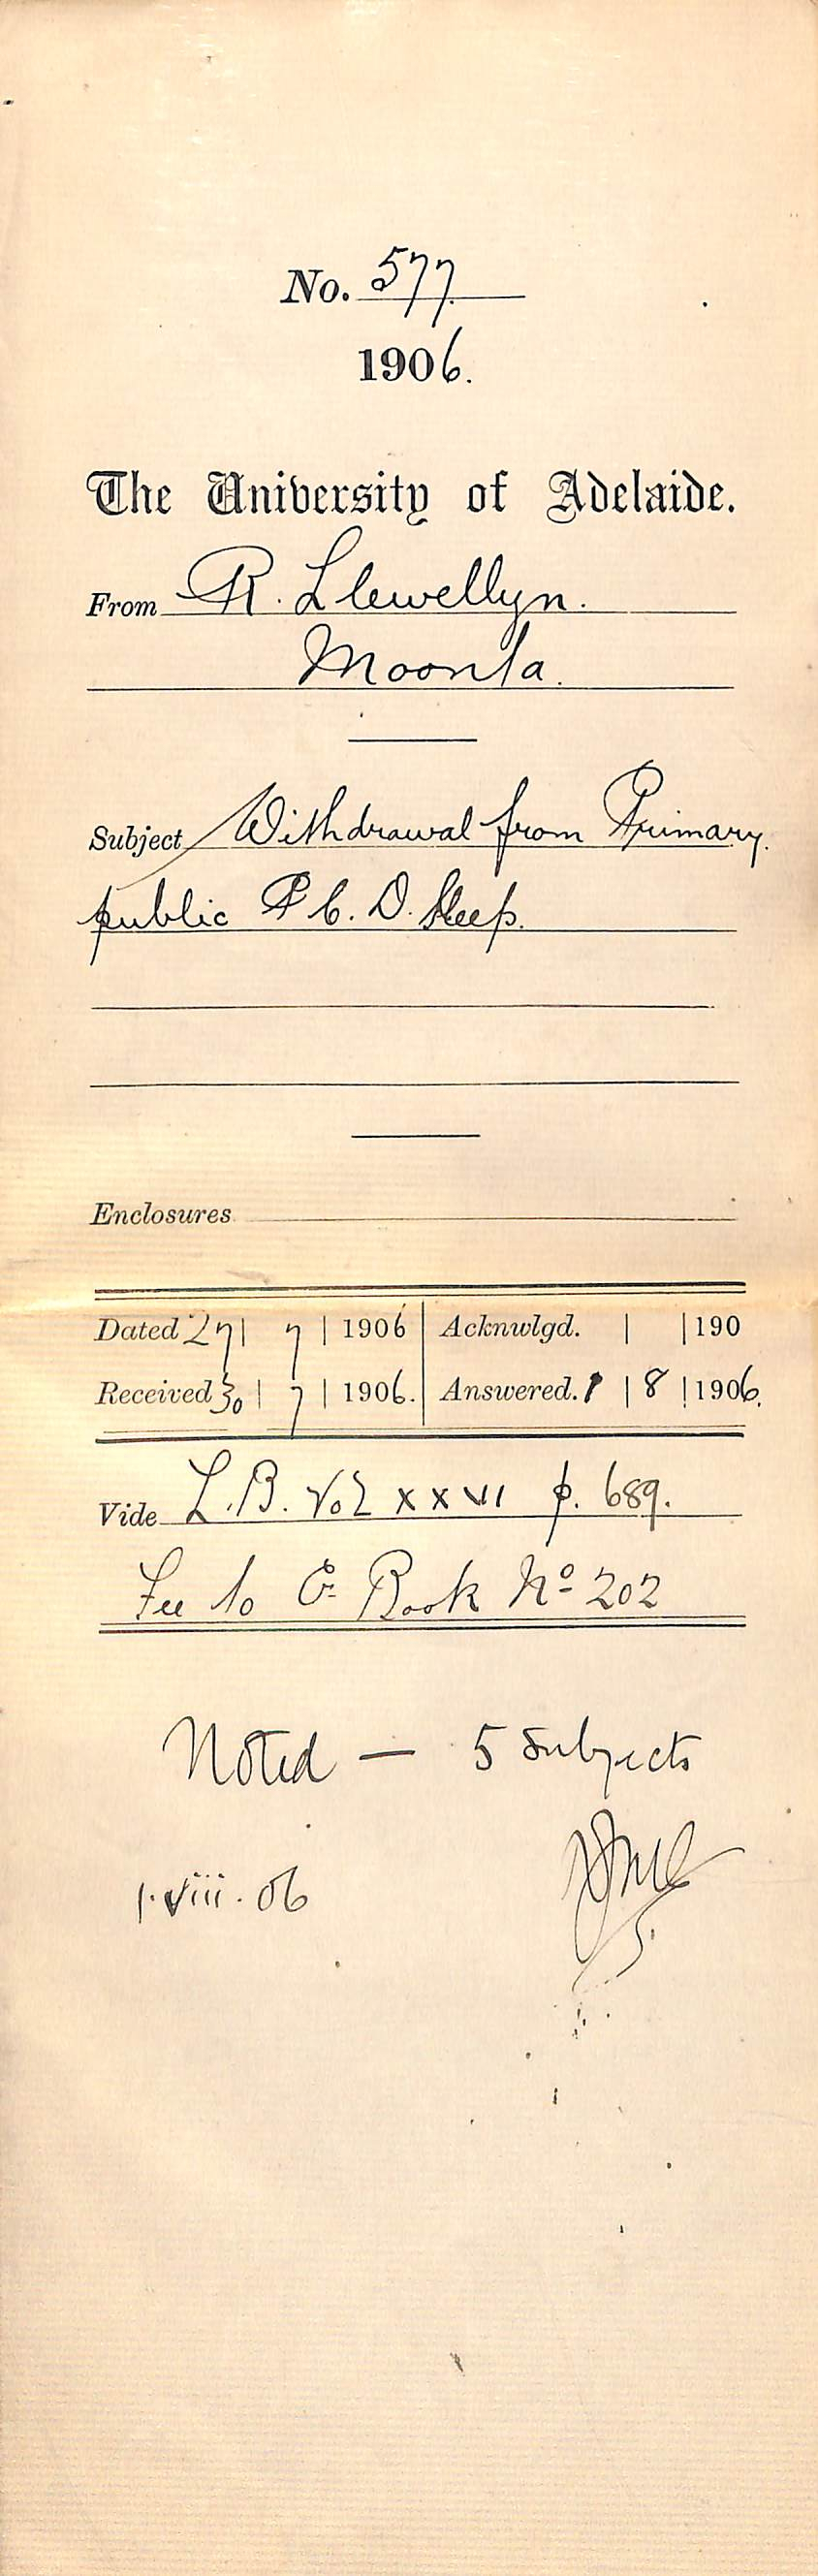 No. 577
1906.
The University of Adelaide.
From R. Llewellyn.
Moonta.
Subject Withdrawal from Primary
public P C. D. Sleep.
Enclosures
Dated 27 | 7 | 1906 | Acknwlgd. | | 190
Received 30 | 7 | 1906. | Answered. 1 | 8 | 1906.
Vide L.B. Vol XXVI p. 689.
Fee to Book No 202
Noted — 5 Subjects
1.viii.06